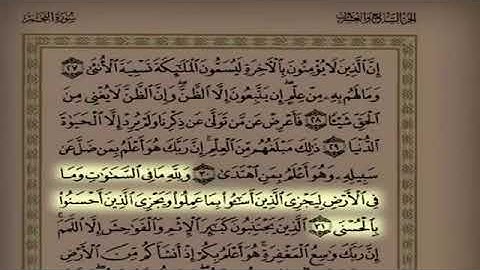 الجزء السابع والعشرون
سورة النجم
إِنَّ ٱلَّذِينَ لَا يُؤْمِنُونَ بِٱلْءَاخِرَةِ لَيُسَمُّونَ ٱلْمَلَٰٓئِكَةَ تَسْمِيَةَ ٱلْأُنثَىٰ ٢٧
وَمَا لَهُم بِهِۦ مِنْ عِلْمٍ إِن يَتَّبِعُونَ إِلَّا ٱلظَّنَّ وَإِنَّ ٱلظَّنَّ لَا يُغْنِى مِنَ
ٱلْحَقِّ شَيْـًٔا ٢٨ فَأَعْرِضْ عَن مَّن تَوَلَّىٰ عَن ذِكْرِنَا وَلَمْ يُرِدْ إِلَّا ٱلْحَيَوٰةَ
ٱلدُّنْيَا ٢٩ ذَٰلِكَ مَبْلَغُهُم مِّنَ ٱلْعِلْمِ إِنَّ رَبَّكَ هُوَ أَعْلَمُ بِمَن ضَلَّ عَن
سَبِيلِهِۦ وَهُوَ أَعْلَمُ بِمَنِ ٱهْتَدَىٰ ٣٠ وَلِلَّهِ مَا فِى ٱلسَّمَٰوَٰتِ وَمَا
فِى ٱلْأَرْضِ لِيَجْزِىَ ٱلَّذِينَ أَسَٰٓـُٔوا۟ بِمَا عَمِلُوا۟ وَيَجْزِىَ ٱلَّذِينَ أَحْسَنُوا۟
بِٱلْحُسْنَى ٣١ ٱلَّذِينَ يَجْتَنِبُونَ كَبَٰٓئِرَ ٱلْإِثْمِ وَٱلْفَوَٰحِشَ إِلَّا ٱللَّمَمَ
إِنَّ رَبَّكَ وَٰسِعُ ٱلْمَغْفِرَةِ هُوَ أَعْلَمُ بِكُمْ إِذْ أَنشَأَكُم مِّنَ ٱلْأَرْضِ